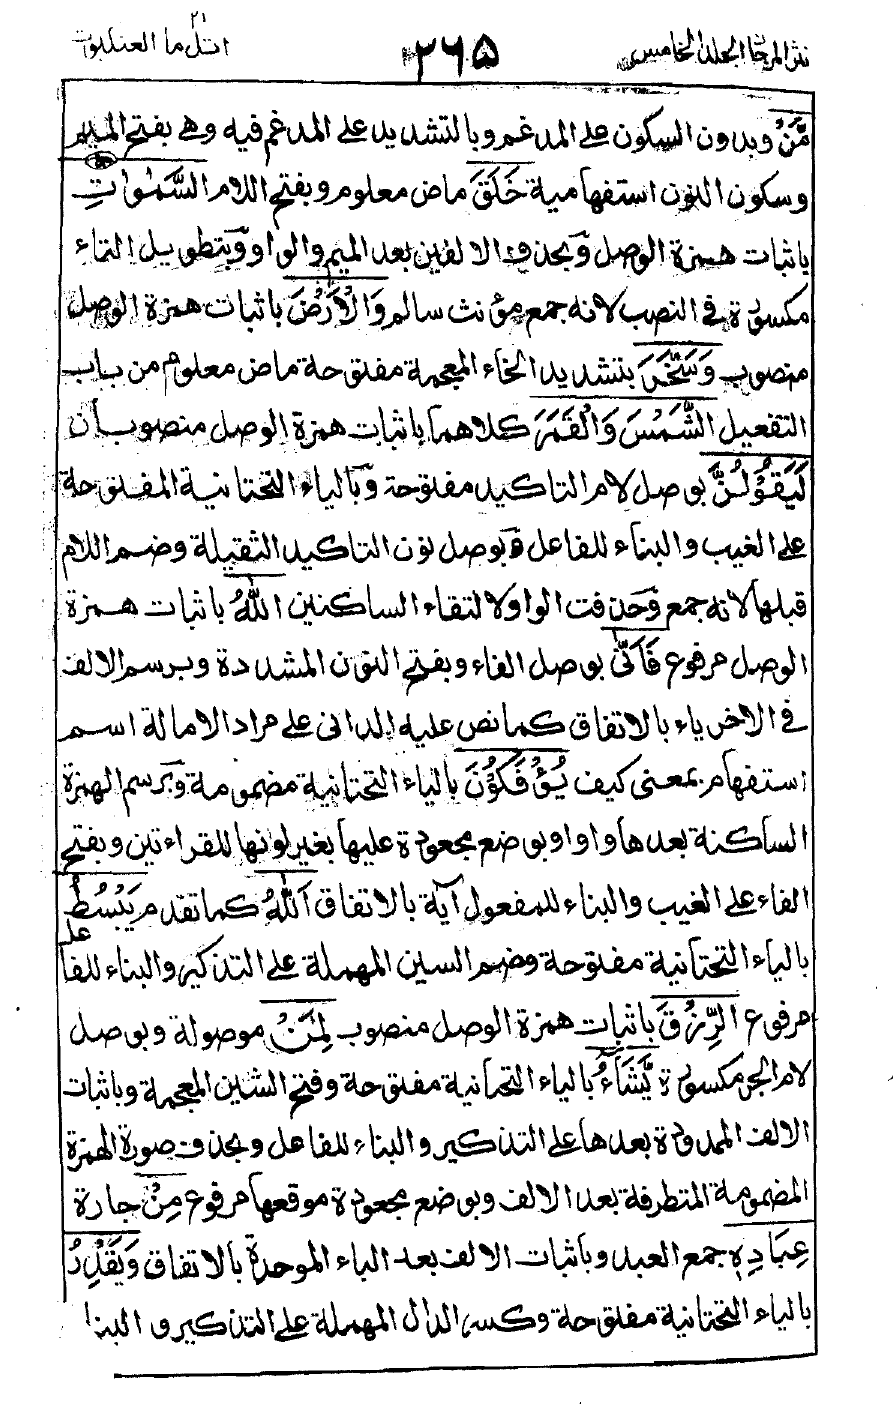 نثر المرجان الجلد الخامس
٢٦٥
اتل ما ٢١ العنكبوت
مَّنْ وبدون السكون على المدغم وبالتشديد على المدغم فيه وهى بفتح الميم
وسكون النون استفهامية خَلَقَ ماض معلوم وبفتح اللام السَّمٰوٰتِ
باثبات همزة الوصل وبحذف الالفين بعد الميم والواو وبتطويل التاء
مكسورة فى النصب لانه جمع مؤنث سالم وَالْاَرْضَ باثبات همزة الوصل
منصوب وَسَخَّرَ بتشديد الخاء المعجمة مفتوحة ماض معلوم من باب
التفعيل الشَّمْسَ وَالْقَمَرَ كلاهما باثبات همزة الوصل منصوبان
لَيَقُوْلُنَّ بوصل لام التاكيد مفتوحة وبالياء التحتانية المفتوحة
على الغيب والبناء للفاعل وبوصل نون التاكيد الثقيلة وضم اللام
قبلها لانه جمع وحذفت الواو لالتقاء الساكنين اللّٰهُ باثبات همزة
الوصل مرفوع فَاَنّٰى بوصل الفاء وبفتح النون المشددة وبرسم الالف
فى الاخر ياء بالاتفاق كما نص عليه الدانى على مراد الامالة اسم
استفهام بمعنى كيف يُؤْفَكُوْنَ بالياء التحتانية مضمومة وبرسم الهمزة
الساكنة بعدها واوا وبوضع مجعودة عليها بغير لونها للقراءتين وبفتح
الفاء على الغيب والبناء للمفعول آية بالاتفاق اَللّٰهُ كما تقدم يَبْسُطُ
بالياء التحتانية مفتوحة وضم السين المهملة على التذكير والبناء للفاعل
مرفوع الرِّزْقَ باثبات همزة الوصل منصوب لِمَنْ موصولة وبوصل
لام الجر مكسورة يَّشَآءُ بالياء التحتانية مفتوحة وفتح الشين المعجمة وباثبات
الالف الممدودة بعدها على التذكير والبناء للفاعل وبحذف صورة الهمزة
المضمومة المتطرفة بعد الالف وبوضع مجعودة موقعها مرفوع مِنْ جارة
عِبَادِهٖ جمع العبد وباثبات الالف بعد الباء الموحدة بالاتفاق وَيَقْدِرُ
بالياء التحتانية مفتوحة وكسر الدال المهملة على التذكير والبنا